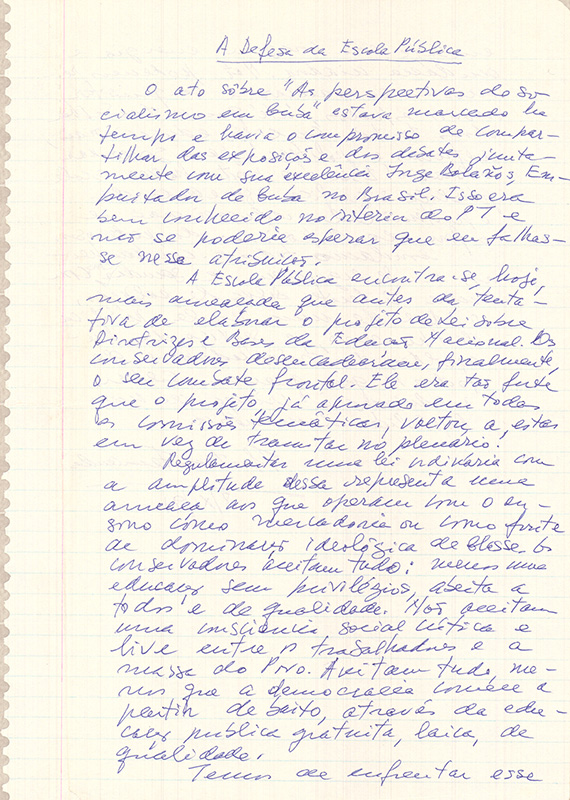 A Defesa da Escola Pública
O ato sôbre "As perspectivas do so-
cialismo em Cuba" estava marcado há
tempo e havia o compromisso de compar-
tilhar das exposições e dos debates, junta-
mente com sua excelência Jorge Bolaños, Em-
baixador de Cuba no Brasil. Isso era
bem conhecido no interior do PT e
não se poderia esperar que eu falhas-
se nessa
A Escola Pública encontra-se, hoje,
mais ameaçada que antes da tenta-
tiva de elaborar o projeto de Lei sobre
Diretrizes e Bases da Educação Nacional. Os
conservadores desencadearam, finalmente,
o seu combate frontal. Ele era tão forte
que o projeto, já aprovado em todas
as comissões temáticas, voltou a estas
em vez de tramitar no plenário!
Regulamentar uma lei ordinária com
a amplitude dessa representa uma
ameaça aos que operam com o en-
sino como mercadoria ou como fonte
de dominação ideológica de classe. Os
conservadores aceitam tudo: menos uma
educação sem privilégios, aberta a
todos e de qualidade. Não aceitam
uma consciência social crítica e
livre entre os trabalhadores e a
massa do Povo. Aceitam tudo, me-
nos que a democracia comece a
partir de baixo, através da edu-
cação pública gratuita, laica, de
qualidade.
Temos de enfrentar esse